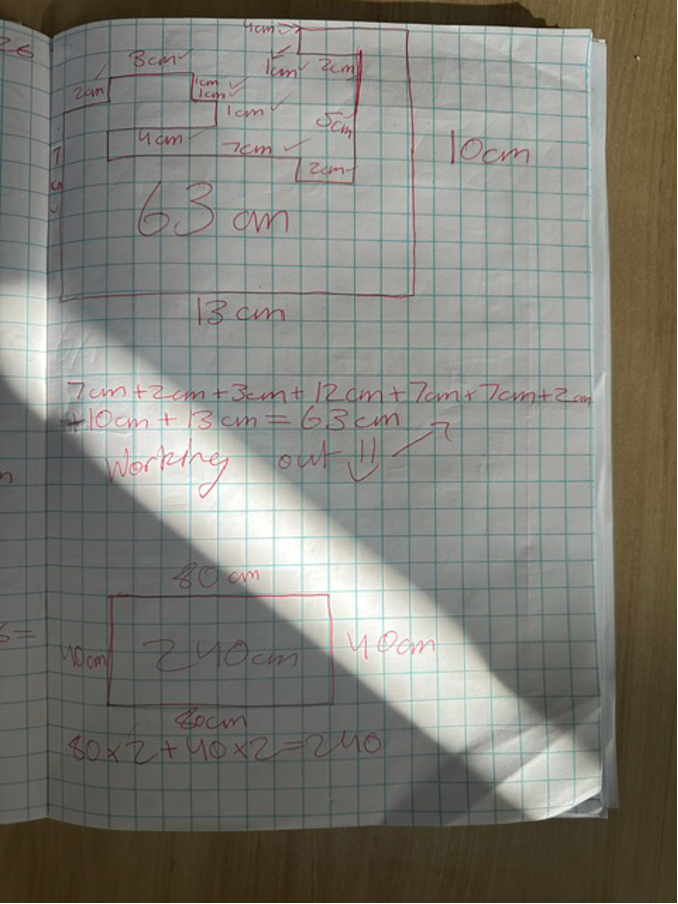 26
4cm
3cm
1cm 2cm
2cm
1cm
1cm
1cm
5cm
4cm
7cm
10cm
2cm
7
63 cm
13 cm
7cm+2cm+3cm+12cm+7cm+7cm+2cm
+10cm+13cm=63cm
Working out !!
80cm
40cm 240cm 40cm
80cm
80×2+40×2=240